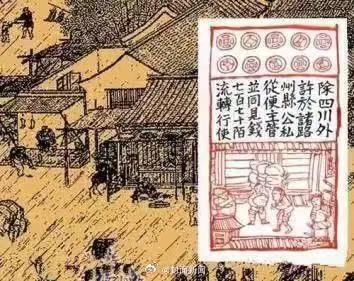 除四川外
許於諸路
州縣公私
從便主管
並同見錢
七百七十陌
流轉行便
@封面新闻